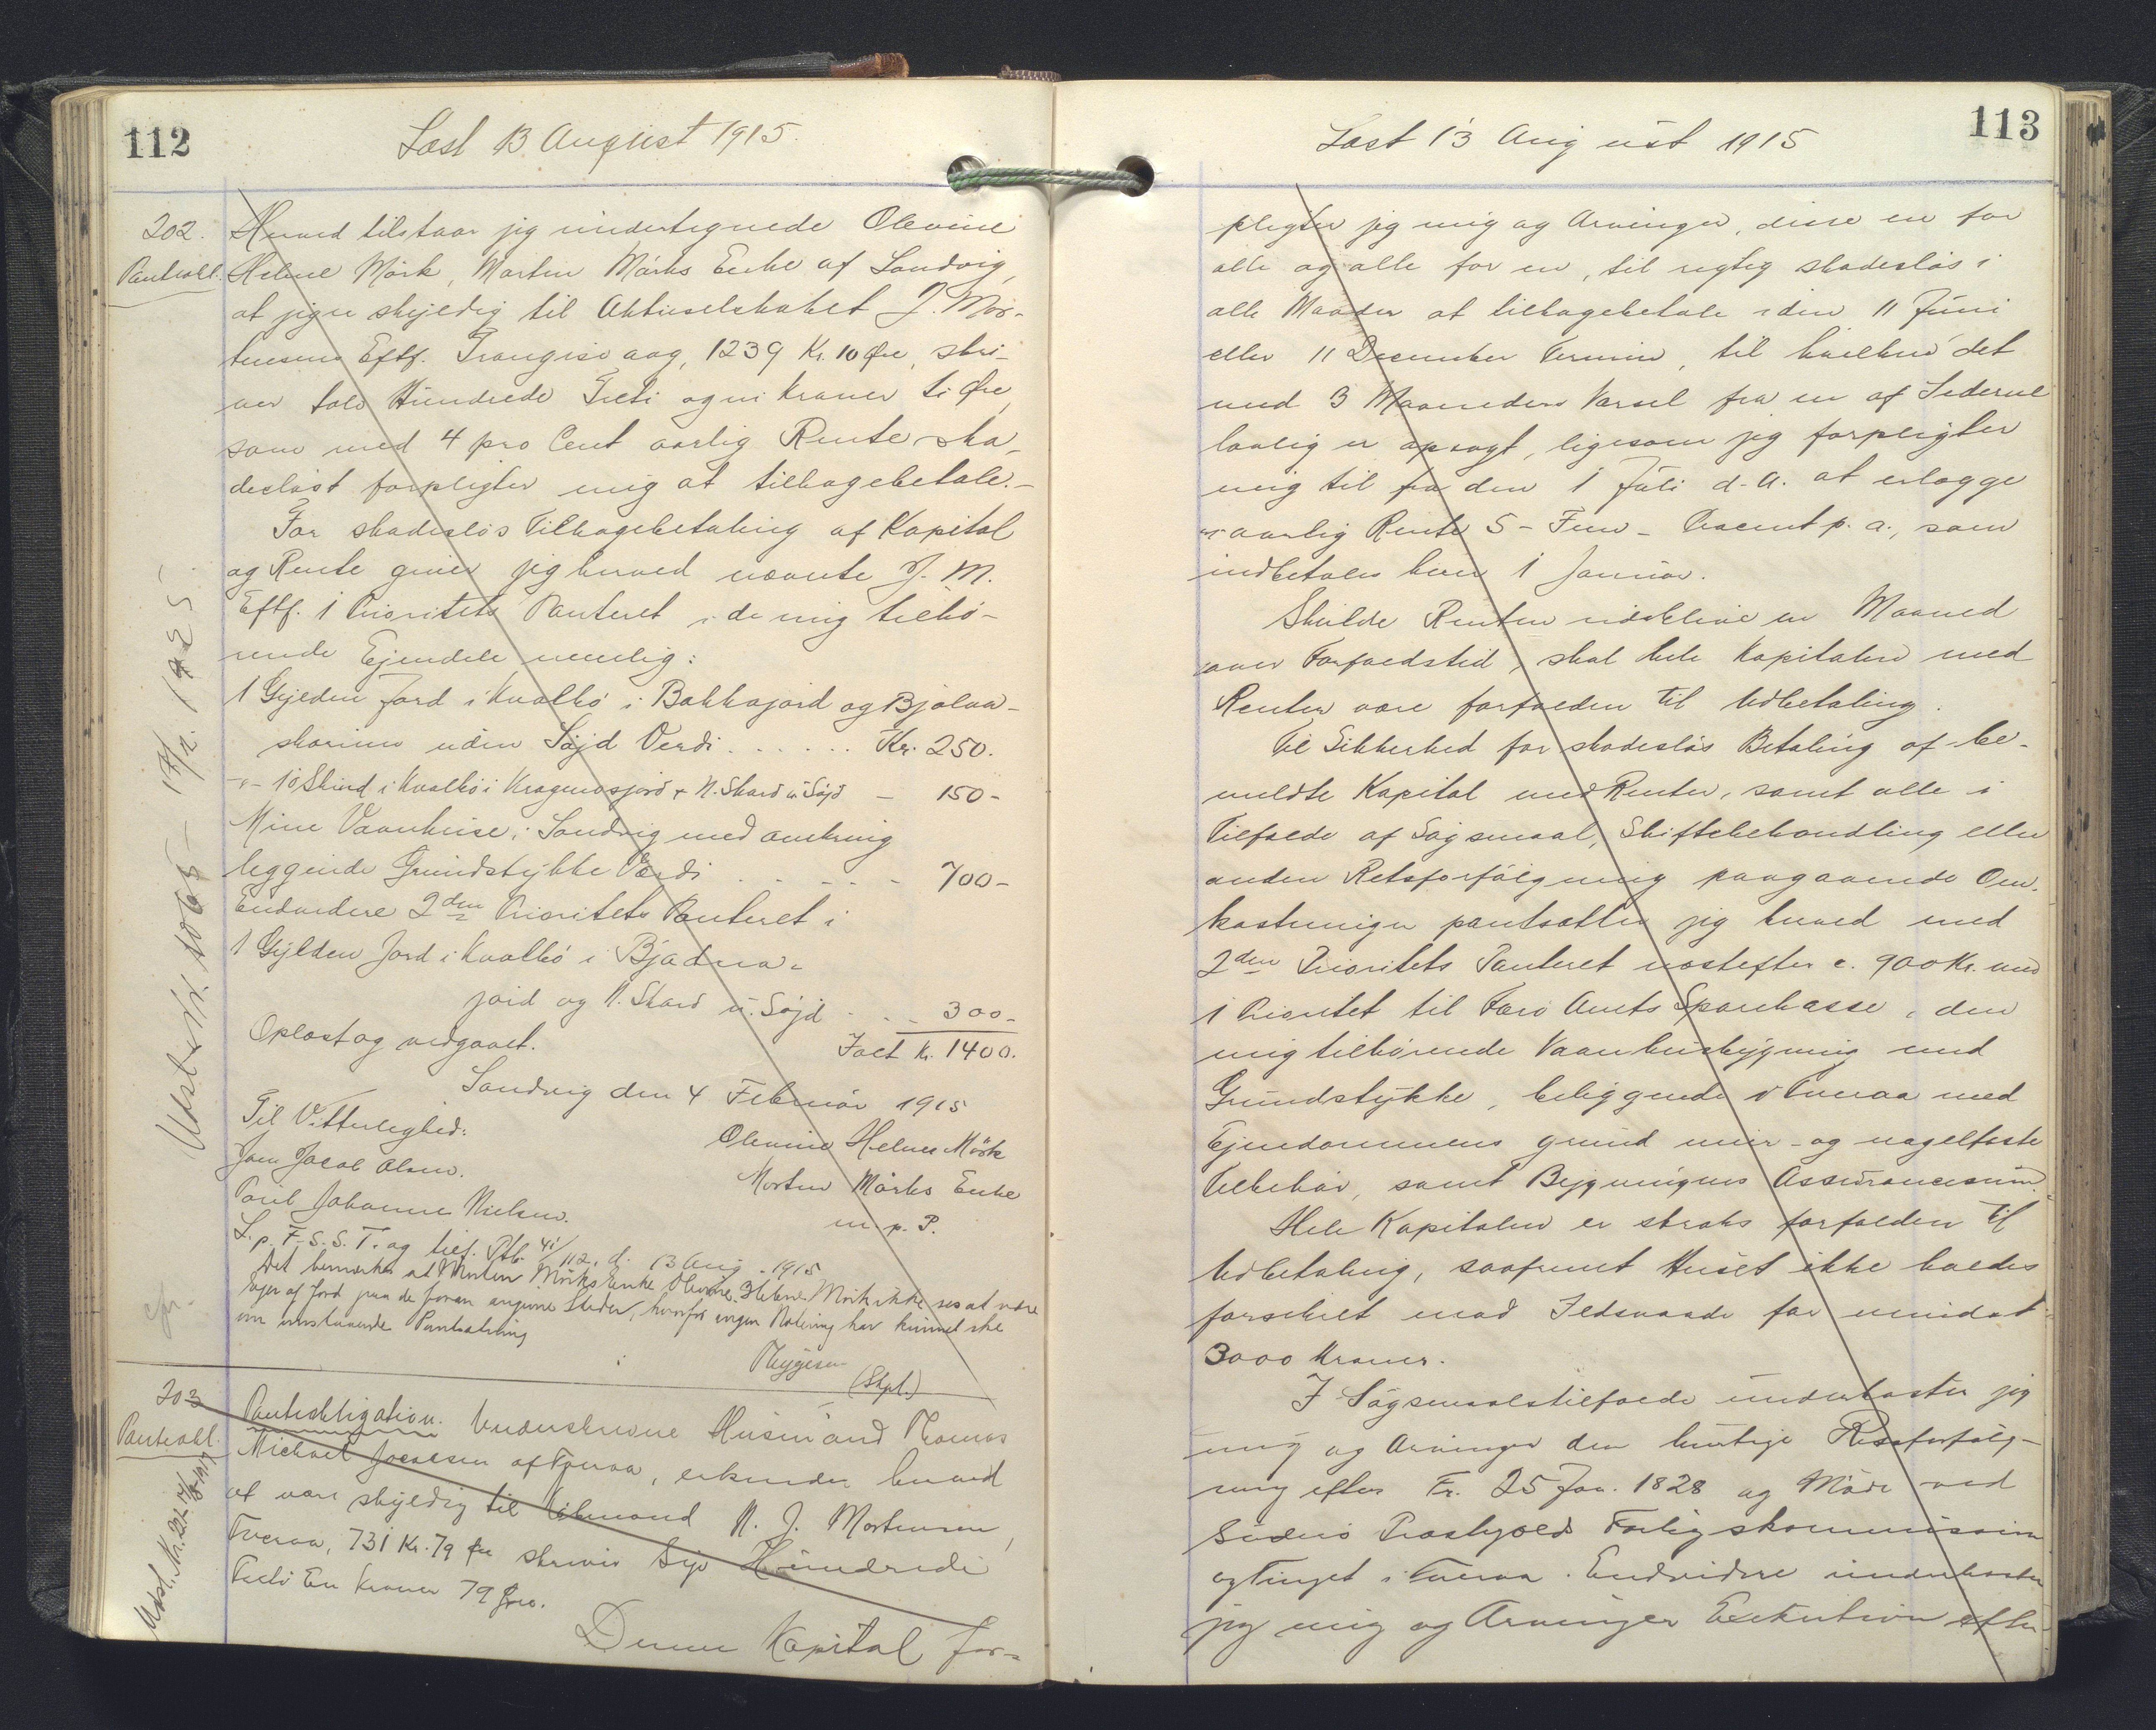 112
Læst 13 August 1915.
202.
Panteobl.
Herved tilstaar jeg undertegnede Olevine
Helene Mörk, Morten Mörks Enke af Sandvig,
at jeg er skyldig til Aktieselskabet J. Mor-
tensens Eftf. Trangisvaag, 1239 Kr. 10 Øre, skri-
ver tolv Hundrede Treti og ni Kroner ti Øre,
som med 4 pro Cent aarlig Rente ska-
deslöst forpligter mig at tilbagebetale.-
For skadeslös Tilbagebetaling af Kapital
og Rente giver jeg herved nævnte J. M.
Eftf. 1 Prioritets Panteret i de mig tilhö-
rende Ejendele nemlig:
1 Gylden Jord i Kvalbö i Bakkajord og Bjolva-
skorinn uden Söjd Verdi . . . . . . Kr. 250.
-"- 10 Skind i Kvalbö i Kragmosjord + N. Skard u Söjd - 150-
Mine Vaanhuse i Sandvig med omkring
leggende Grundstykke Værdi . . - - - 700-
Endvidere 2den Prioritets Panteret i
1 Gylden Jord i Kvalbö i Bjadna-
jord og N. Skard u. Söjd . . - 300-
Ialt Kr. 1400.
Oplæst og vedgaaet.
Sandvig den 4 Februar 1915
Til Vitterlighed:
Olevine Helene Mörk
Joen Jacob Olsen.
Morten Mörks Enke
Poul Johannes Nielsen.
m. p. P.
L. p. F. S. S. T. og tilf. Ptb. 4i/112, d. 13 Aug. 1915
Det bemærkes at Morten Mörks Enke Olevine Helene Mörk ikke ses at være
Ejer af Jord paa de foran angivne Steder, hvorfor ingen Notering har kunnet ske
om omstaaende Pantsætning
Thygesen
(Skpt.)
Udsl. Nr. 1065 - 17/12. 1925.
203
Panteobl.
Udsl. Nr. 22
Panteobligation. Underskrevne Husmand Thomas
Michael Joensen af Tveraa, erkender herved
at være skyldig til Købmand N. J. Mortensen,
Tveraa, 731 Kr. 79 Øre skriver Syv Hundrede
Treti En Kroner 79 Øre.
Denne Kapital for-
113
Læst 13 August 1915
pligter jeg mig og Arvinger, disse en for
alle og alle for en, til rigtig skadeslös i
alle Maader at tilbagebetale i den 11 Juni
eller 11 December Termin, til hvilken det
med 3 Maaneders Varsel fra en af Siderne
lovlig er opsagt, ligesom jeg forpligter
mig til fra den 1 Juli d. A. at erlægge
en aarlig Rente 5 - Fem - Procent p. a., som
indbetales hver 1 Januar.
Skulde Renten udeblive en Maaned
over Forfaldstid, skal hele Kapitalen med
Renter være forfalden til Udbetaling.
Til Sikkerhed for skadeslös Betaling af be-
meldte Kapital med Renter, samt alle i
Tilfælde af Sögsmaal, Skiftebehandling eller
anden Retsforfölgning paagaaende Om-
kostninger pantsætter jeg herved med
2den Prioritets Panteret næstefter c. 900 Kr. med
1 Prioritet til Færö Amts Sparekasse, den
mig tilhörende Vaanhusbygning med
Grundstykke, beliggende i Tveraa med
Ejendommens grund mur- og nagelfaste
Tilbehör, samt Bygningens Assurancesum.
Hele Kapitalen er straks forfalden til
Udbetaling, saafremt Huset ikke holdes
forsikret mod Ildsvaade for mindst
3000 Kroner.
I Sögsmaalstilfælde underkaster jeg
mig og Arvinger den hurtige Retsforfölg-
ning efter Fr. 25 Jan. 1828 og Möde ved
Suderö Præstgjelds Forligskommission
og Tinget i Tveraa. Endvidere underkaster
jeg mig og Arvinger Exekution efter